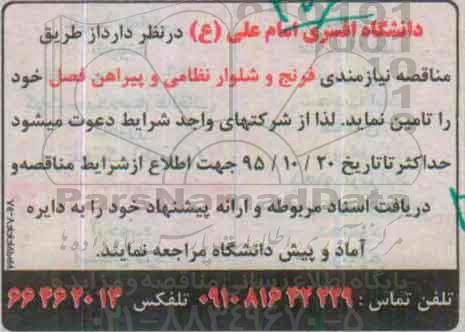 دانشگاه افسری امام علی (ع) درنظر دارداز طریق
مناقصه نیازمندی فرنج و شلوار نظامی و پیراهن فصل خود
را تامین نماید. لذا از شرکتهای واجد شرایط دعوت میشود
حداکثر تاتاریخ ۲۰ / ۱۰ / ۹۵ جهت اطلاع ازشرایط مناقصه‌و
دریافت اسناد مربوطه و ارائه پیشنهاد خود را به دایره
آماد و پیش دانشگاه مراجعه نمایند.
تلفن تماس : ۰۹۱۰۸۱۶۲۲۲۲۹ تلفکس ۶۶۴۶۲۰۱۳
ParsNamadData
۰۲۱-۸۸۳۴۹۶۷۰-۵